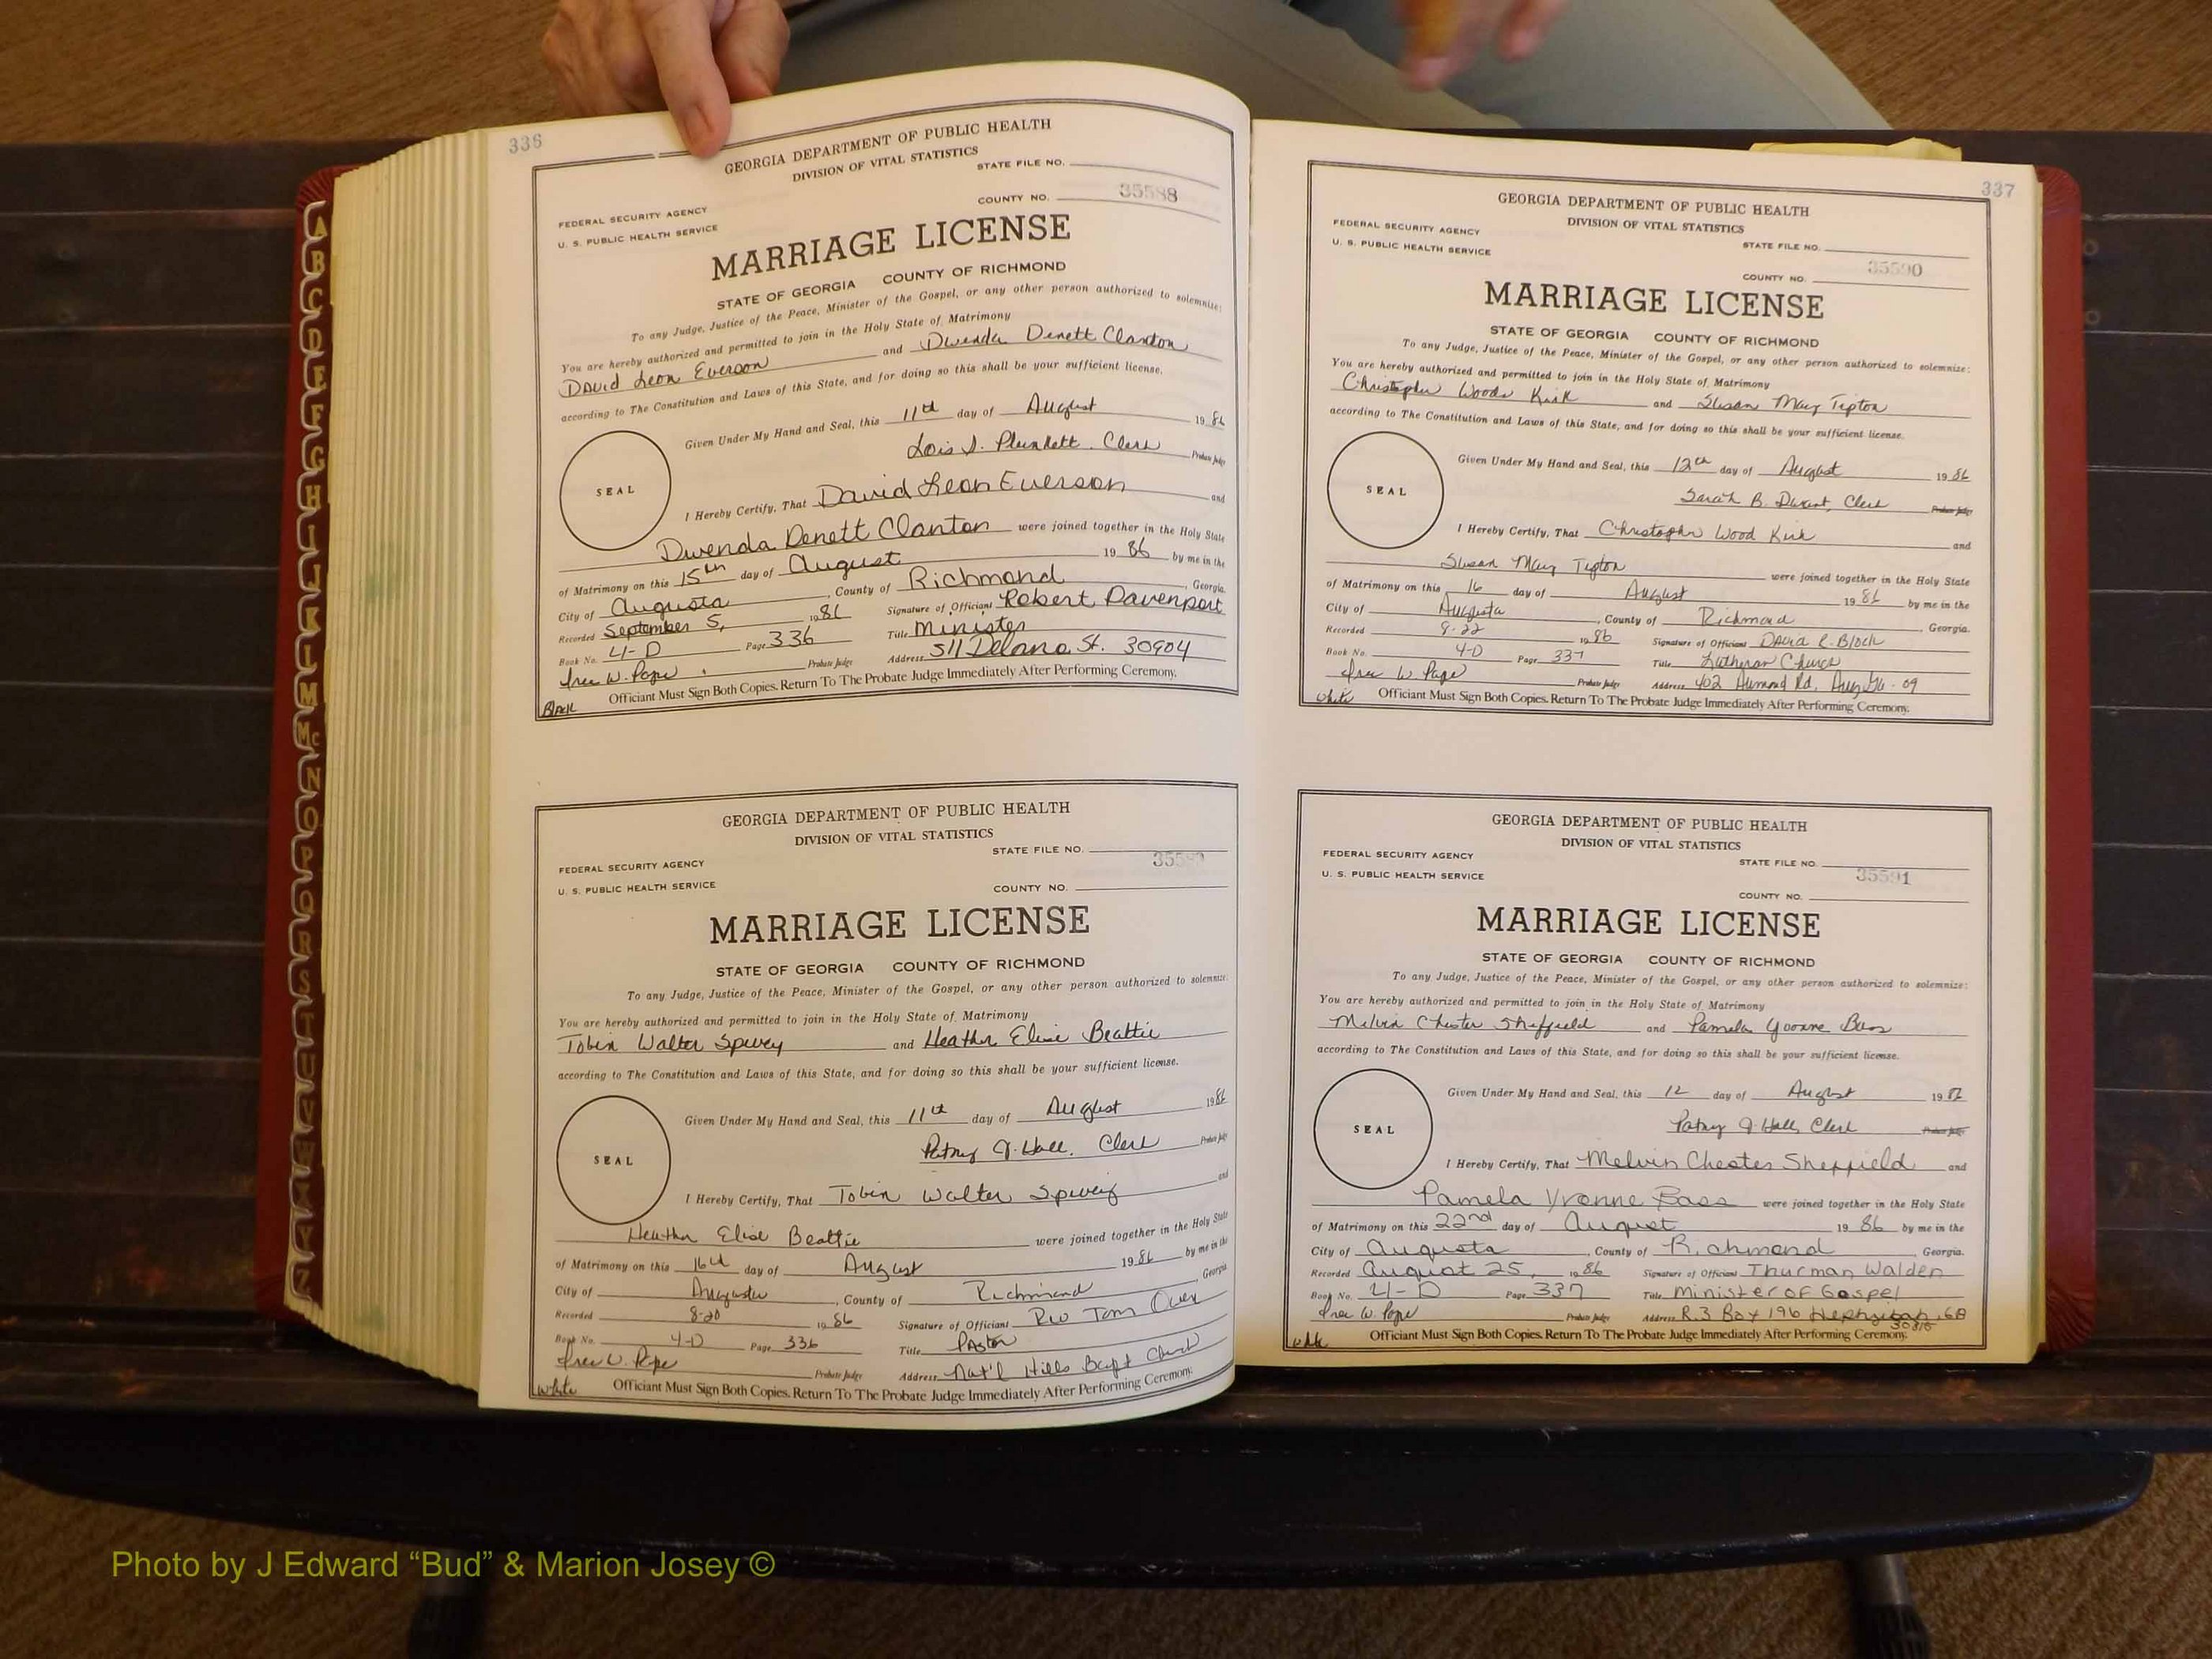 336
GEORGIA DEPARTMENT OF PUBLIC HEALTH
DIVISION OF VITAL STATISTICS
STATE FILE NO.
35588
COUNTY NO.
FEDERAL SECURITY AGENCY
U. S. PUBLIC HEALTH SERVICE
MARRIAGE LICENSE
STATE OF GEORGIA COUNTY OF RICHMOND
To any Judge, Justice of the Peace, Minister of the Gospel, or any other person authorized to solemnize:
You are hereby authorized and permitted to join in the Holy State of Matrimony
David Leon Everson and Dwenda Denett Clanton
according to The Constitution and Laws of this State, and for doing so this shall be your sufficient license.
Given Under My Hand and Seal, this 11th day of August 1986
Lois S. Plunkett, Clerk Probate Judge
SEAL
I Hereby Certify, That David Leon Everson and
Dwenda Denett Clanton were joined together in the Holy State
of Matrimony on this 15th day of August 1986 by me in the
City of Augusta, County of Richmond, Georgia.
Recorded September 5, 1986 Signature of Officiant Robert Davenport
Book No. 4-D Page 336 Title Minister
W. Pope Probate Judge Address 511 Delano St. 30904
Officiant Must Sign Both Copies. Return To The Probate Judge Immediately After Performing Ceremony.
Black
GEORGIA DEPARTMENT OF PUBLIC HEALTH
DIVISION OF VITAL STATISTICS
STATE FILE NO.
FEDERAL SECURITY AGENCY
U. S. PUBLIC HEALTH SERVICE
COUNTY NO.
MARRIAGE LICENSE
STATE OF GEORGIA COUNTY OF RICHMOND
To any Judge, Justice of the Peace, Minister of the Gospel, or any other person authorized to solemnize:
You are hereby authorized and permitted to join in the Holy State of Matrimony
Tobin Walter Spivey and Heather Elise Beattie
according to The Constitution and Laws of this State, and for doing so this shall be your sufficient license.
Given Under My Hand and Seal, this 11th day of August 1986
Patsy J. Hall, Clerk Probate Judge
SEAL
I Hereby Certify, That Tobin Walter Spivey and
Heather Elise Beattie were joined together in the Holy State
of Matrimony on this 16th day of August 1986 by me in the
City of Augusta, County of Richmond, Georgia
Recorded 8-20 1986 Signature of Officiant Rev Tom Owen
Book No. 4-D Page 336 Title Pastor
W. Pope Probate Judge Address Nat'l Hills Bapt Church
White Officiant Must Sign Both Copies. Return To The Probate Judge Immediately After Performing Ceremony.
337
GEORGIA DEPARTMENT OF PUBLIC HEALTH
DIVISION OF VITAL STATISTICS
FEDERAL SECURITY AGENCY
U. S. PUBLIC HEALTH SERVICE
STATE FILE NO.
35590
COUNTY NO.
MARRIAGE LICENSE
STATE OF GEORGIA COUNTY OF RICHMOND
To any Judge, Justice of the Peace, Minister of the Gospel, or any other person authorized to solemnize:
You are hereby authorized and permitted to join in the Holy State of Matrimony
Christopher Woods Kirk and Susan Mary Tipton
according to The Constitution and Laws of this State, and for doing so this shall be your sufficient license.
Given Under My Hand and Seal, this 12th day of August 1986
Sarah B. Clerk Probate Judge
SEAL
I Hereby Certify, That Christopher Wood Kirk and
Susan Mary Tipton were joined together in the Holy State
of Matrimony on this 16 day of August 1986 by me in the
City of Augusta, County of Richmond, Georgia.
Recorded 1986 Signature of Officiant David R. Block
Book No. 4-D Page 337 Title Lutheran Church
W. Pope Probate Judge Address 402 Aumond Rd. Aug Ga - 09
White Officiant Must Sign Both Copies. Return To The Probate Judge Immediately After Performing Ceremony.
GEORGIA DEPARTMENT OF PUBLIC HEALTH
DIVISION OF VITAL STATISTICS
FEDERAL SECURITY AGENCY
U. S. PUBLIC HEALTH SERVICE
STATE FILE NO.
35591
COUNTY NO.
MARRIAGE LICENSE
STATE OF GEORGIA COUNTY OF RICHMOND
To any Judge, Justice of the Peace, Minister of the Gospel, or any other person authorized to solemnize:
You are hereby authorized and permitted to join in the Holy State of Matrimony
Melvin Chester Sheffield and Pamela Yvonne Bass
according to The Constitution and Laws of this State, and for doing so this shall be your sufficient license.
Given Under My Hand and Seal, this 12 day of August 19
Patsy J. Hall, Clerk Probate Judge
SEAL
I Hereby Certify, That Melvin Chester Sheffield and
Pamela Yvonne Bass were joined together in the Holy State
of Matrimony on this 22nd day of August 1986 by me in the
City of Augusta, County of Richmond, Georgia.
Recorded August 25, 1986 Signature of Officiant Thurman Walden
Book No. 4-D Page 337 Title Minister of Gospel
W. Pope Probate Judge Address R.3 Box 196 Hephzibah, GA
30815
White Officiant Must Sign Both Copies. Return To The Probate Judge Immediately After Performing Ceremony.
A
B
C
D
E
F
G
H
I
J
K
L
M
Mc
N
O
P
Q
R
S
T
U
V
W
X
Y
Z
Photo by J Edward “Bud” & Marion Josey ©